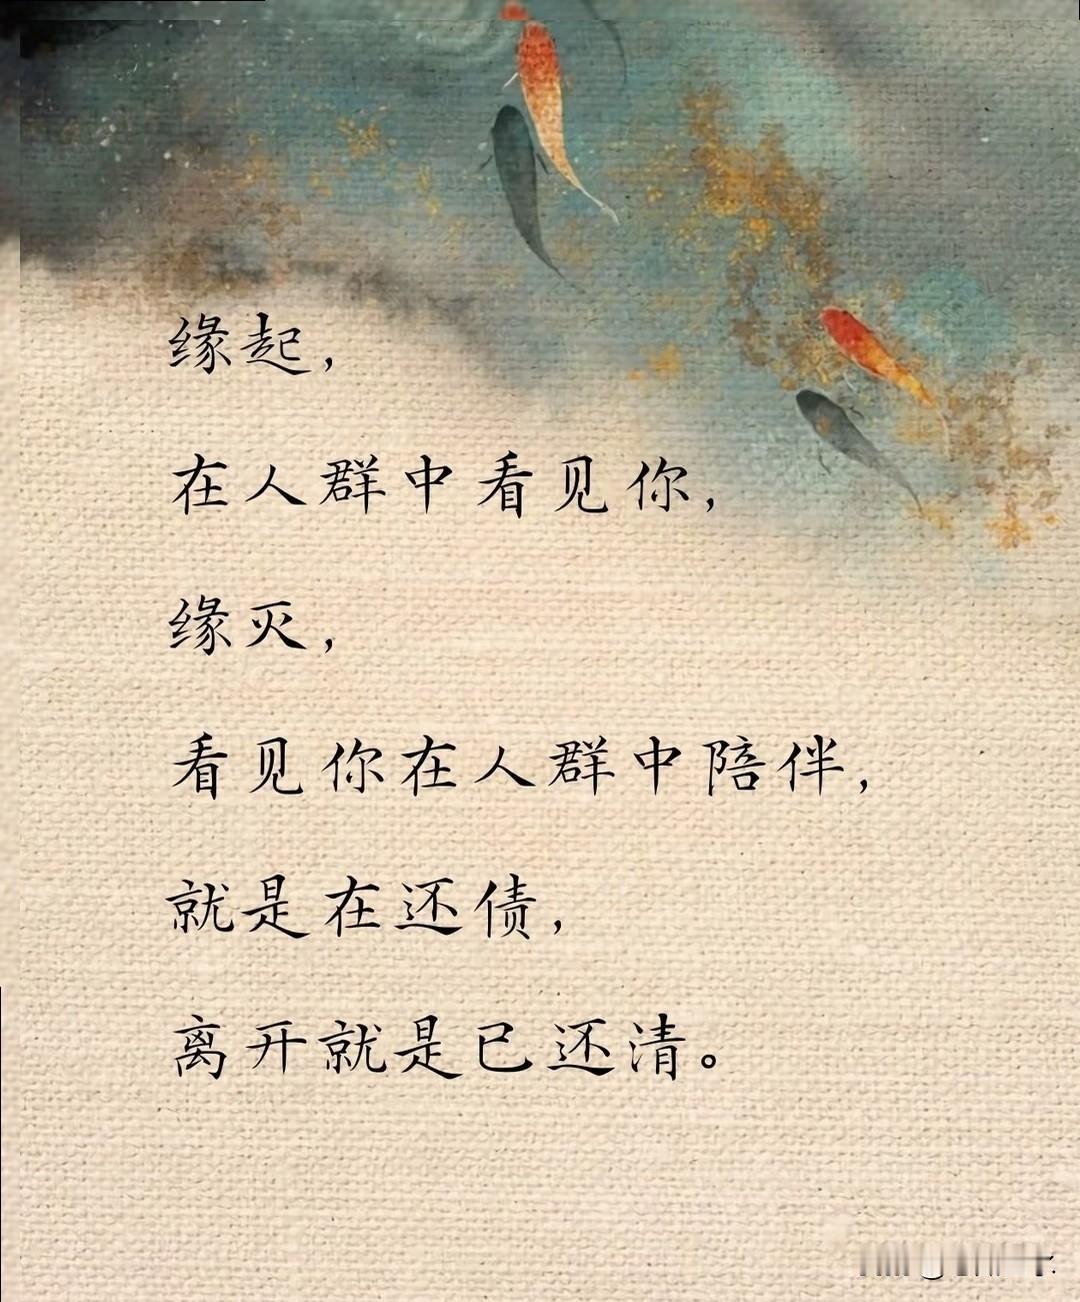 缘起，
在人群中看见你，
缘灭，
看见你在人群中陪伴，
就是在还债，
离开就是已还清。